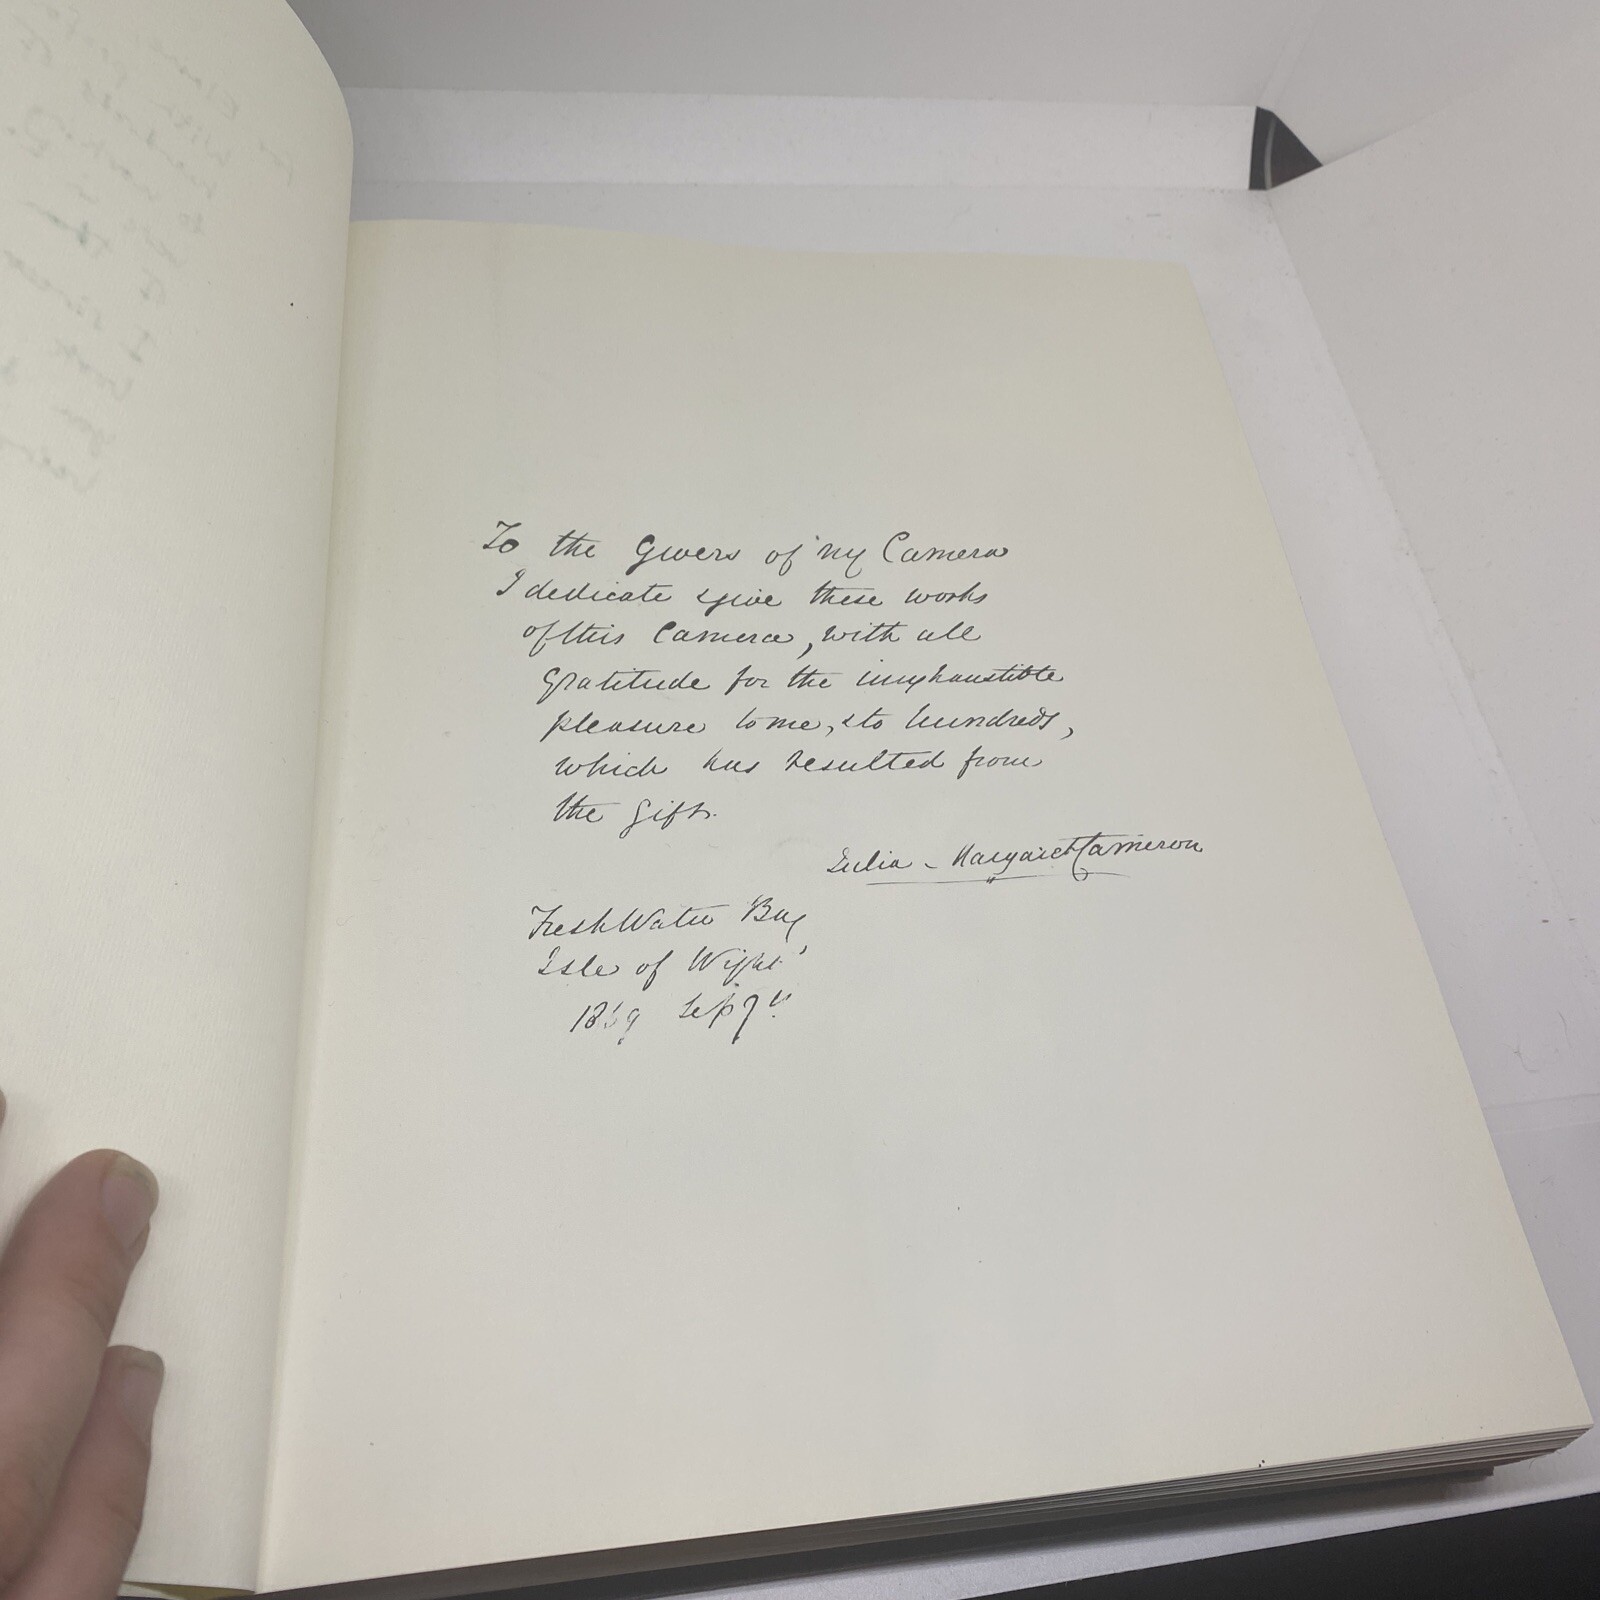 To the Givers of my Camera
I dedicate & give these works
of this Camera, with all
gratitude for the inexhaustible
pleasure to me, & to hundreds,
which has resulted from
the gift.
Julia Margaret Cameron
Fresh Water Bay
Isle of Wight
1869 Sep 7th